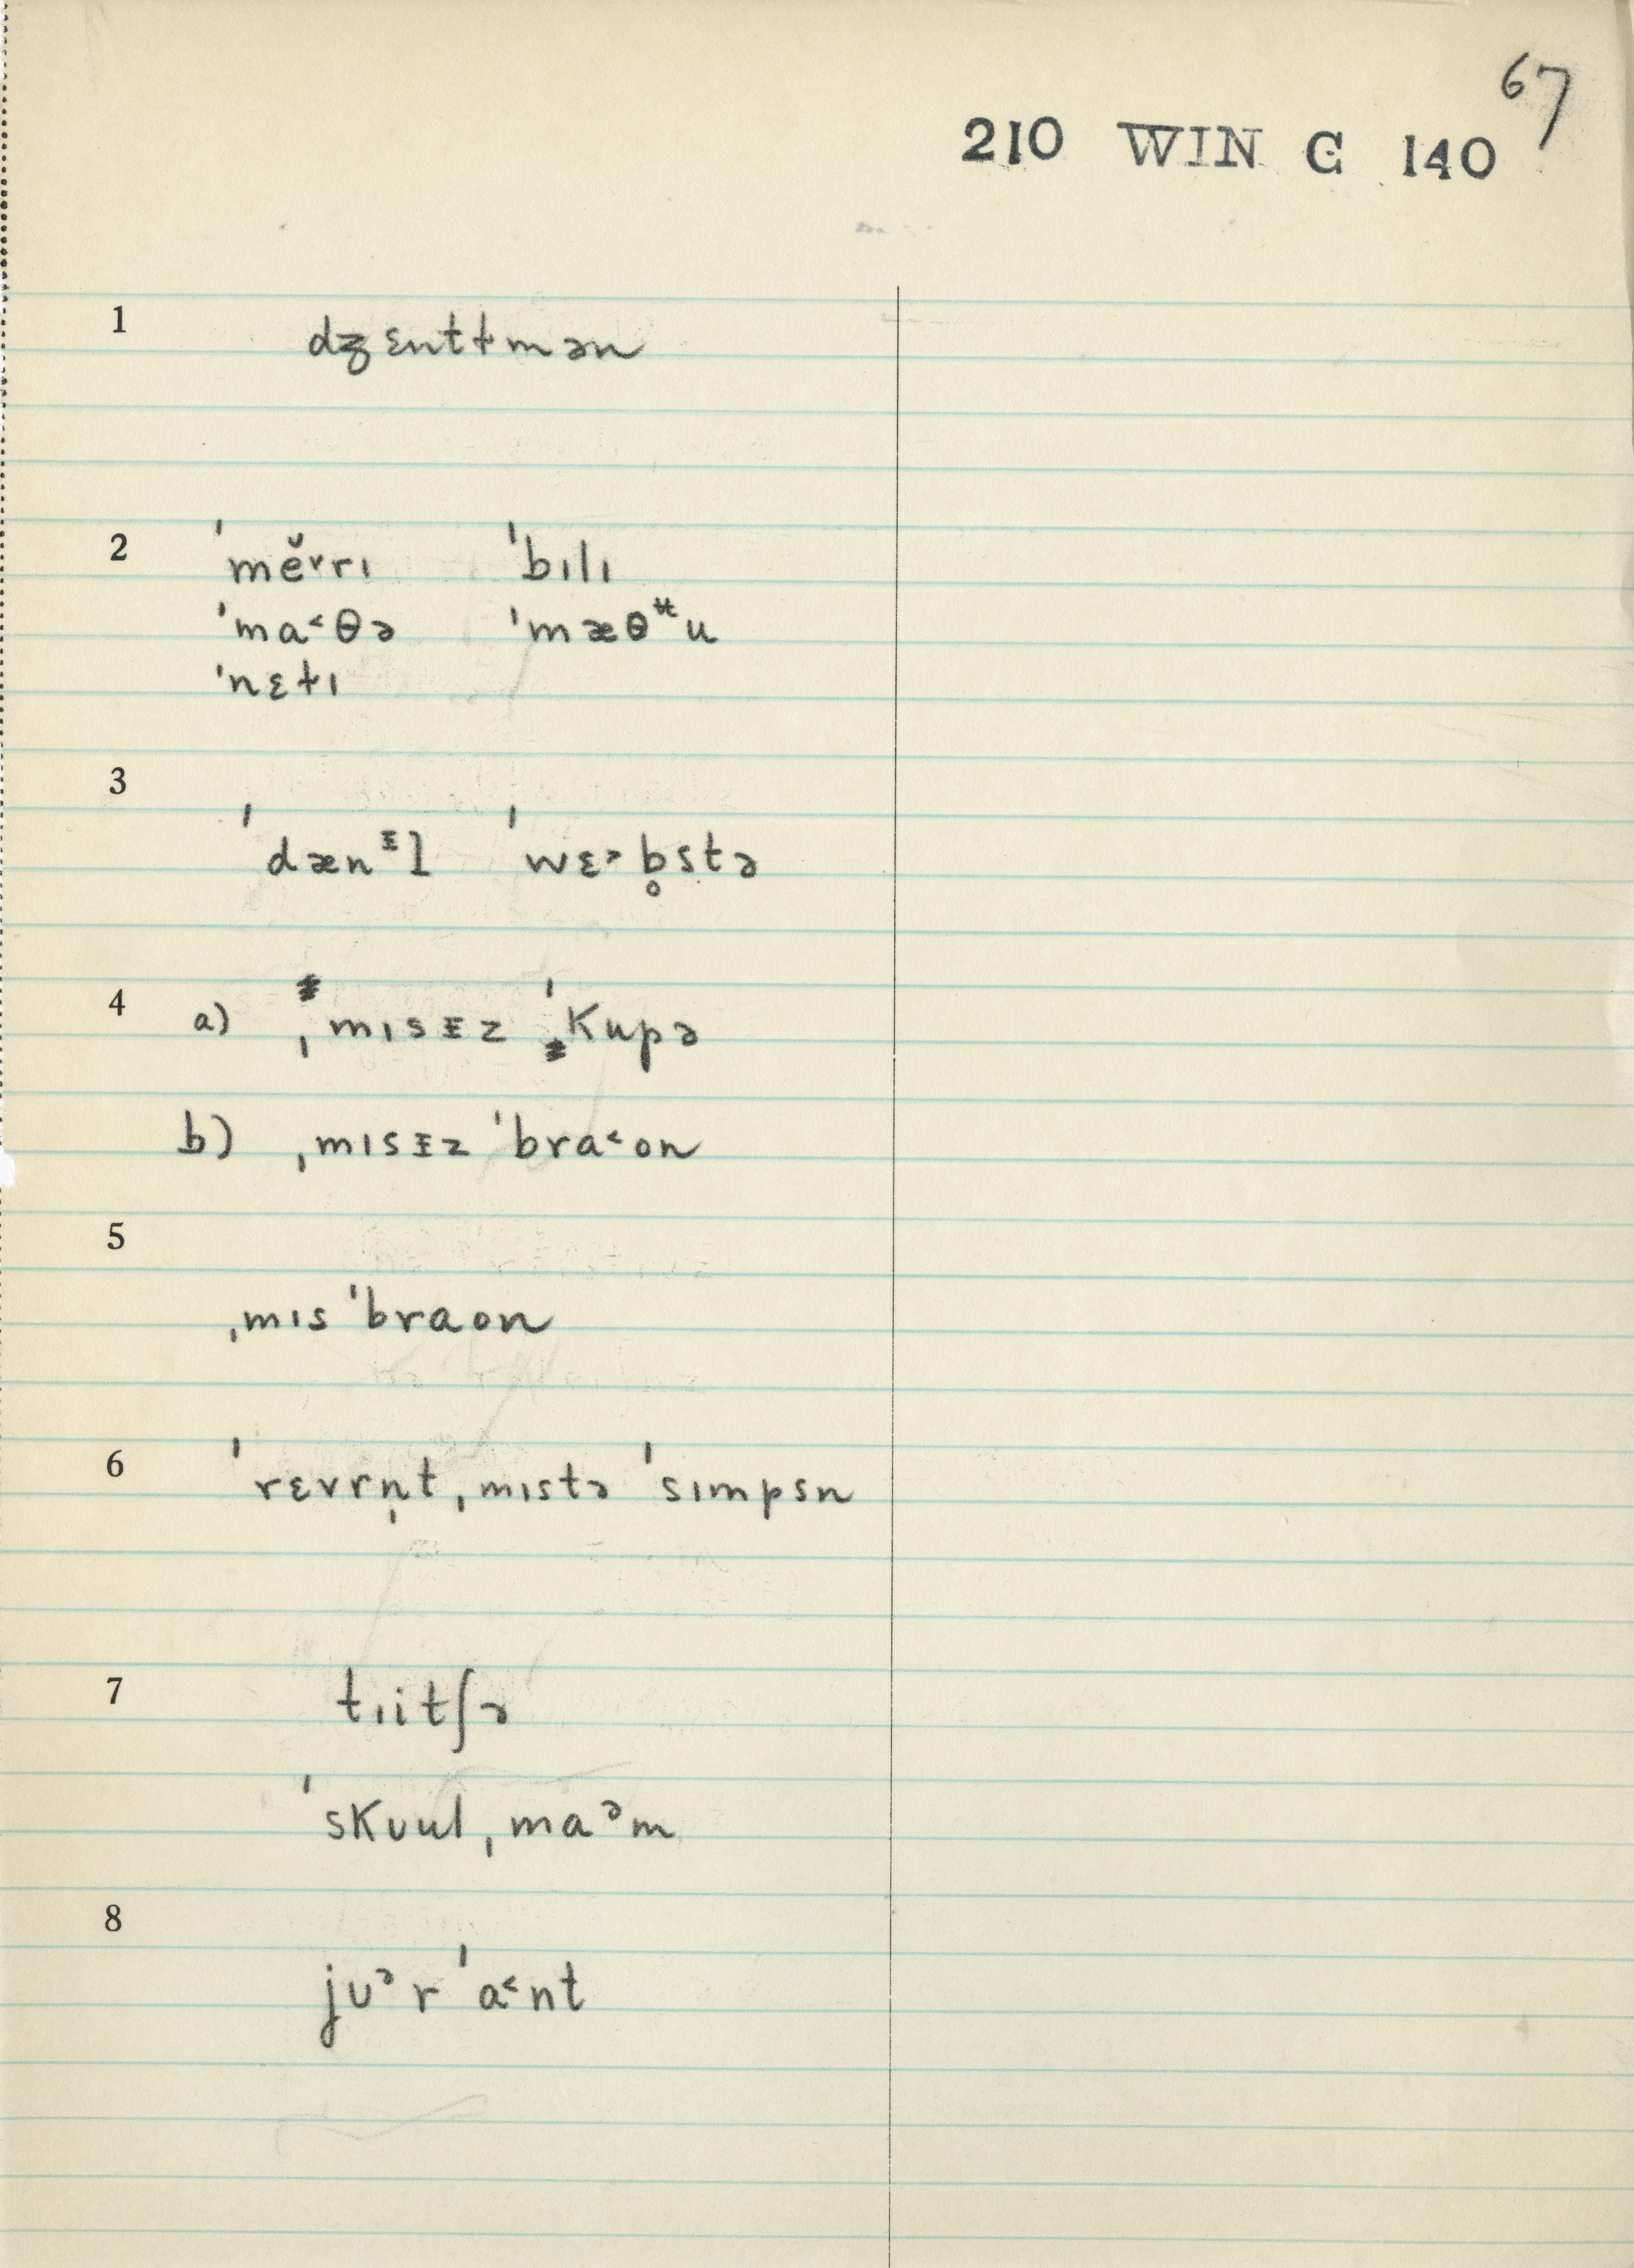 67
210 WIN C 140
1 dʒɛntɫmən
2 ˈmĕ˅rɪ ˈbɪlɪ
ˈma˂θə ˈmæθᵾu
ˈnɛɫɪ
3 ˈdænᵻl ˈwɛ˃b̥stə
4 a) ˌmɪsᵻz ˈkupə
b) ˌmɪsᵻz ˈbra˂on
5 ˌmɪs ˈbraon
6 ˈrɛvrn̩t ˌmɪstə ˈsɪmpsn
7 tɪitʃə
ˈskᴜul ˌmaᵊm
8 jᴜᵊr ˈa˂nt